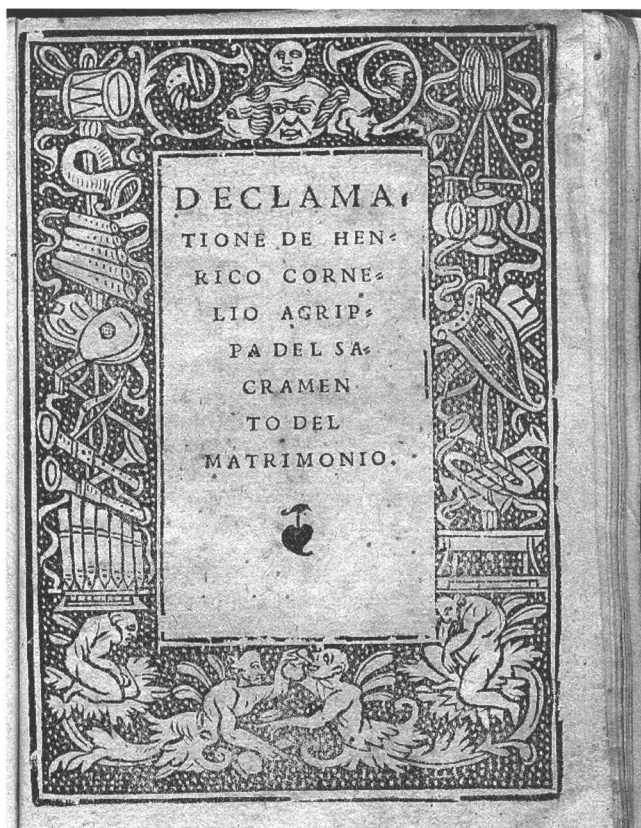 DECLAMA-
TIONE DE HEN-
RICO CORNE-
LIO AGRIP-
PA DEL SA-
CRAMEN
TO DEL
MATRIMONIO.